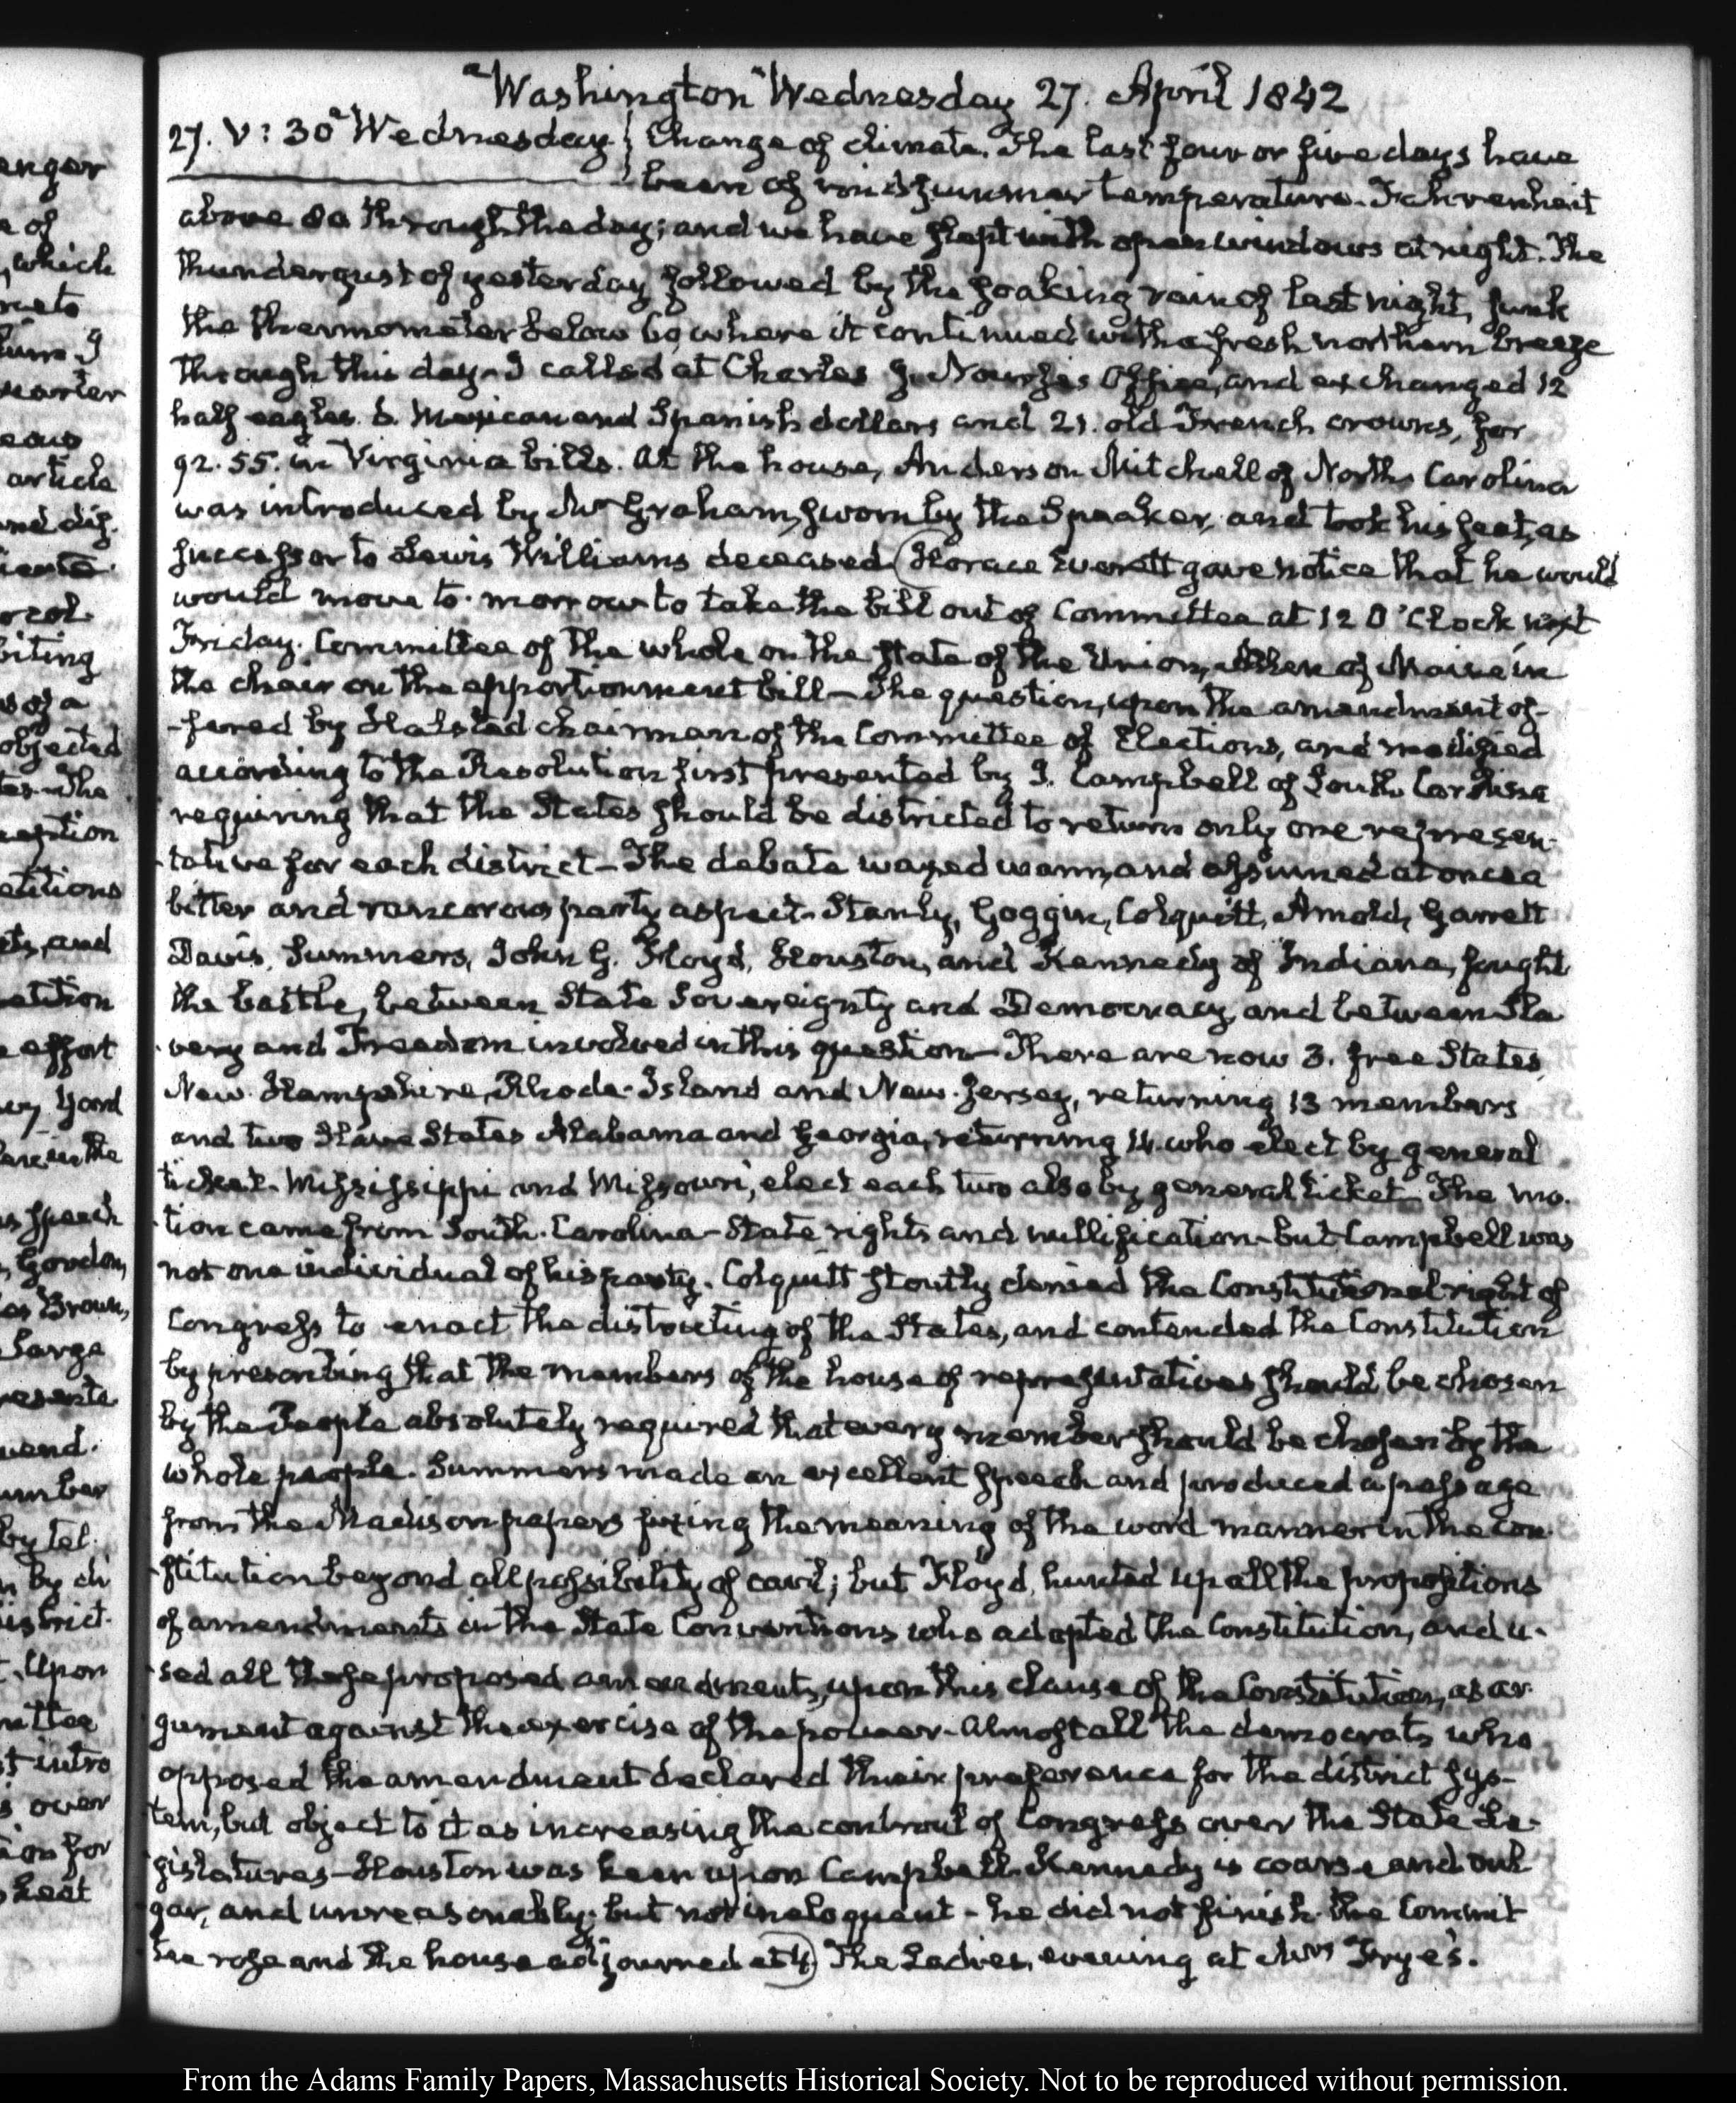 "Washington" Wednesday 27. April 1842
27. V: 30 Wednesday. Change of climate. The last four or five days have
been of midsummer temperature. Fahrenheit
above 80 through the day; and we have slept with open windows at night. The
thundergust of yesterday followed by the soaking rain of last night, sunk
the thermometer below 60 where it continued with a fresh northern breeze
through this day. I called at Charles J. Nourse's Office, and exchanged 12
half eagles. 6. Mexican and Spanish dollars and 21. old French crowns, for
92.55. in Virginia bills. At the house, Anderson Mitchell of North Carolina
was introduced by Mr Graham, sworn by the Speaker, and took his seat, as
successor to Lewis Williams deceased. (Horace Everett gave notice that he would
would move to-morrow to take the bill out of Committee at 12 O'Clock next
Friday. Committee of the whole on the state of the Union, Allen of Maine in
the chair on the apportionment bill—The question, upon the amendment of-
-fered by Halsted chairman of the Committee of Elections, and modified
according to the Resolution first presented by J. Campbell of South Carolina
requiring that the States should be districted to return only one represen-
tative for each district—The debate waxed warm, and assumed at once a
bitter and rancorous party aspect. Stanly, Goggin, Colquitt, Arnold, Garrett
Davis, Summers, John G. Floyd, Houston, and Kennedy of Indiana, fought
the battle, between State Sovereignty and Democracy, and between Sla
-very and Freedom involved in this question—There are now 3. free States,
New-Hampshire, Rhode-Island and New-Jersey, returning 13 members
and two Slave States Alabama and Georgia, returning 14. who elect by general
ticket. Mississippi and Missouri, elect each two also by general ticket. The mo-
-tion came from South-Carolina—State rights and nullification—but Campbell was
not one individual of his party. Colquitt stoutly denied the Constitutional right of
Congress to enact the districting of the States, and contended the Constitution
by prescribing that the members of the house of representatives should be chosen
by the People absolutely required that every member should be chosen by the
whole people. Summers made an excellent speech and produced a passage
from the Madison papers fixing the meaning of the word manner in the Con
-stitution beyond all possibility of cavil; but Floyd, hunted up all the propositions
of amendments in the State Conventions who adopted the Constitution, and u-
-sed all these proposed amendments, upon this clause of the Constitution, as ar-
gument against the exercise of the power. Almost all the democrats who
opposed the amendment declared their preference for the district sys-
tem, but object to it as increasing the controul of Congress over the State Le-
gislatures—Houston was keen upon Campbell. Kennedy is coarse and vul
gar, and unreasonably; but not ineloquent—he did not finish. the Commit
tee rose and the house adjourned at 4) The Ladies, evening at Mrs Frye's.
enger
of
which
I
quarter
article
and dis
biting
of a
objected
The
etitions
and
petition
effort
Yard
in the
speech
Gordon,
Brown,
Sarge
mend.
umber
by tel.
by di
istrict.
Upon
mittee
intro
over
ion for
heat
From the Adams Family Papers, Massachusetts Historical Society. Not to be reproduced without permission.